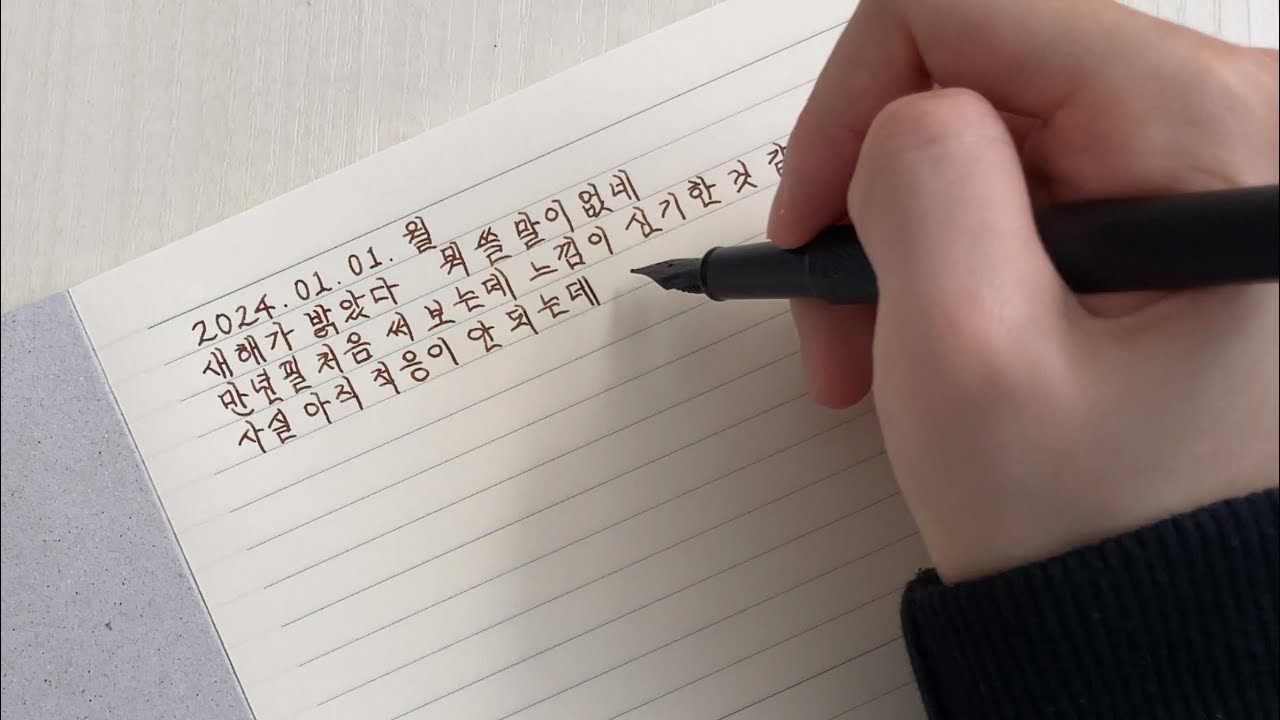 2024.01.01.월
새해가 밝았다 뭐 쓸 말이 없네
만년필 처음 써 보는데 느낌이 신기한 것
사실 아직 적응이 안 되는데